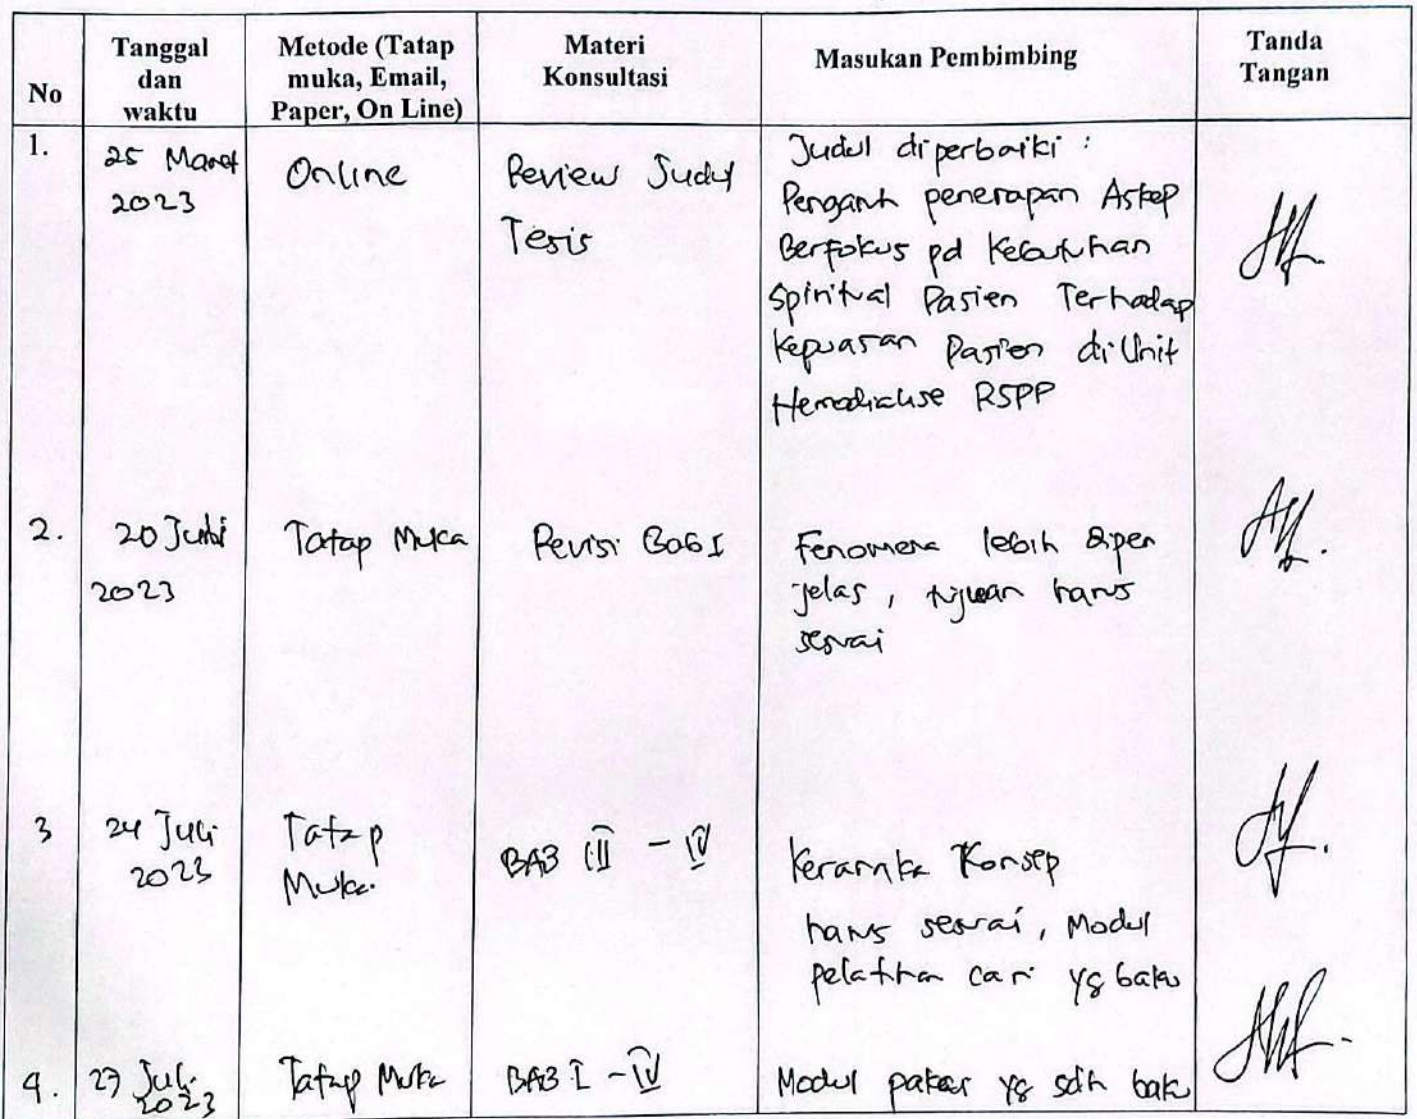 No
Tanggal
dan
waktu
Metode (Tatap
muka, Email,
Paper, On Line)
Materi
Konsultasi
Masukan Pembimbing
Tanda
Tangan
1.
25 Maret
2023
Online
Review Judul
Tesis
Judul diperbaiki :
Pengaruh penerapan Askep
Berfokus pd Kebutuhan
Spiritual Pasien Terhadap
Kepuasan Pasien di Unit
Hemodialise RSPP
2.
20 Juni
2023
Tatap Muka
Revisi Bab I
Fenomena lebih diper
jelas, tujuan harus
sesuai
3
24 Juli
2023
Tatap
Muka.
BAB III - IV
Kerangka Konsep
harus sesuai, Modul
pelatihan cari yg baku
4.
27 Juli
2023
Tatap Muka
BAB I - IV
Modul pakai yg sdh baku